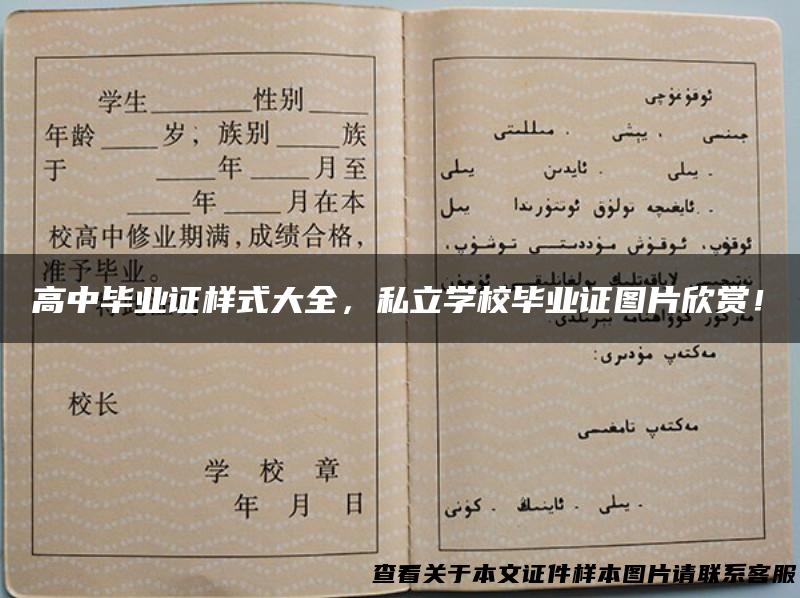 学生________性别____
年龄____岁；族别____族
于 ____年____月至
____年____月在本
校高中修业期满，成绩合格，
准予毕业。
校长
学 校 章
年 月 日
ئوقۇغۇچى
جىنسى ، يېشى ، مىللىتى
، يىلى ، ئايدىن يىلى
، ئايغىچە تولۇق ئوتتۇرىدا يىل
ئوقۇپ، ئوقۇش مۇددىتى توشۇپ،
مەكتەپ مۇدىرى:
مەكتەپ تامغىسى
، يىلى ، ئاينىڭ ، كۈنى
高中毕业证样式大全，私立学校毕业证图片欣赏！
查看关于本文证件样本图片请联系客服